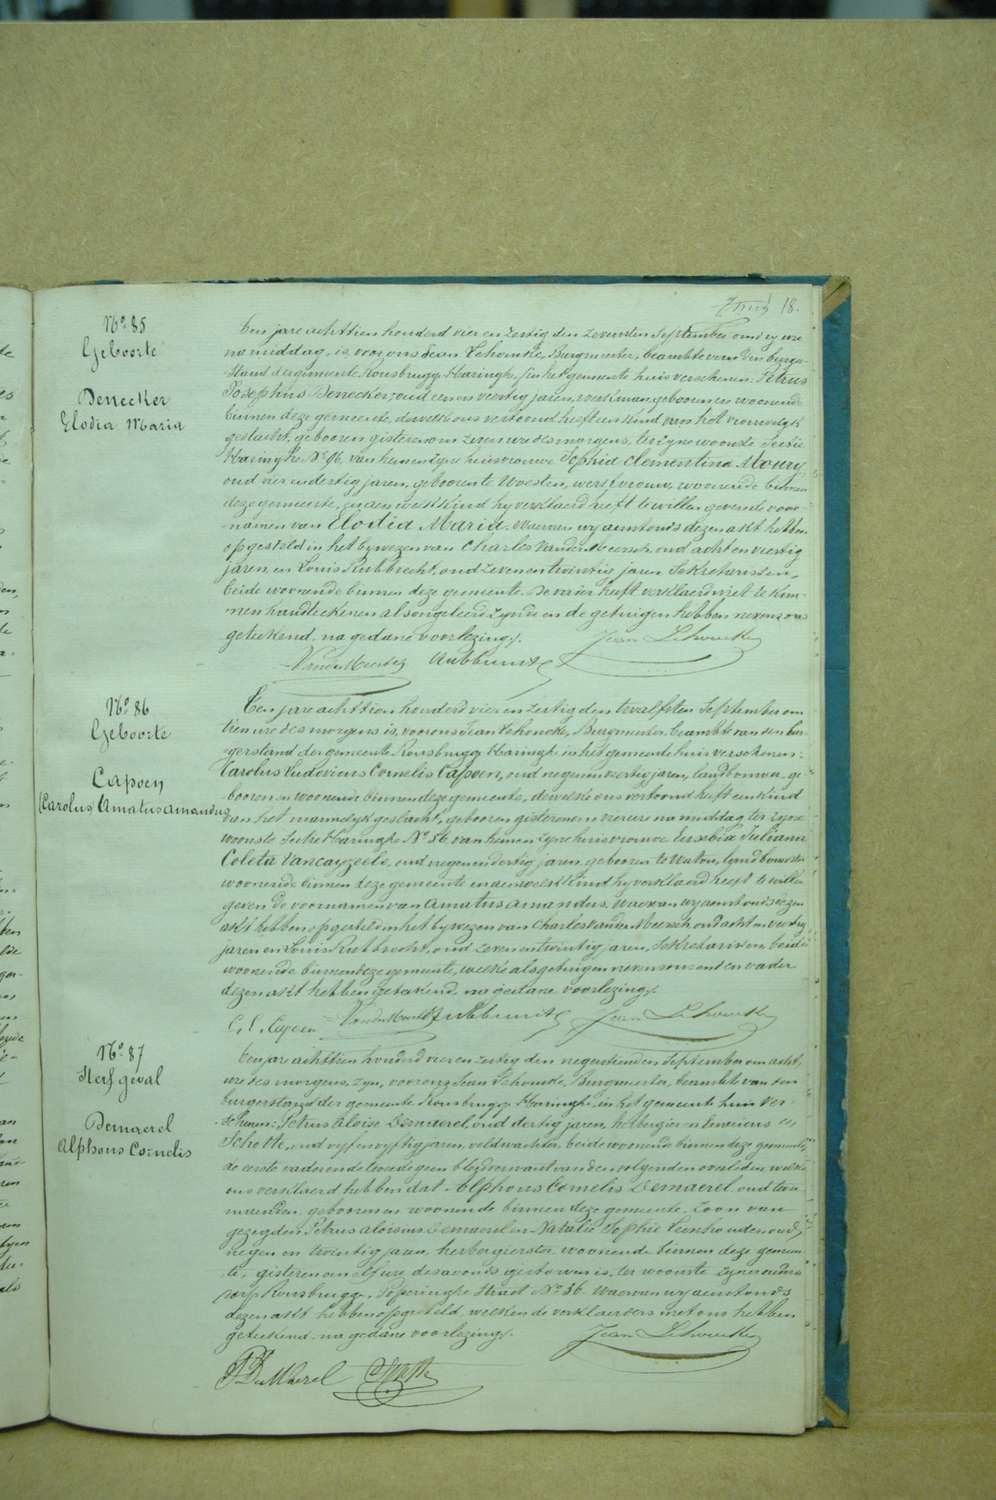 18.
N° 85
Geboorte
Denecker
Elodia Maria
Een jare achttien honderd vier en zestig den zevensten September om vyf ure
na middag, is voor ons Jean Lehoucke, Burgmeester, beambte van den burger-
stand der gemeente Rousbrugge-Haringhe, in het gemeente huis verschenen: Petrus
Josephus Denecker, oud een en veertig jaren, werkman, geboren en woonende
binnen deze gemeente, dewelke ons vertoond heeft een kind van het vrouwelyk
geslacht, geboren gisteren om zeven ure des morgens, ter zyne woonste Sectie
Haringhe N° 96, van hem en zyne huisvrouwe Sophia Clementina Moury
oud vier en dertig jaren, geboren te Woesten, werkvrouw, woonende binnen
deze gemeente, en aen welk kind hy verklaerd heeft te willen geven de voor-
namen van Elodia Maria. Waervan wy aenstonds dezen akt hebben
opgesteld in het bywezen van Charles Vandermeersch, oud acht en veertig
jaren, en Louis Rubbrecht, oud zeven en twintig jaren, Sekretarissen,
beide woonende binnen deze gemeente. De vader heeft verklaerd niet te kun-
nen handteekenen als ongeleerd zynde en de getuigen hebben nevens ons
geteekend, na gedane voorlezing.
Jean Lehoucke
N° 86
Geboorte
Capoen
(Carolus) Amatus Amandus
Een jare achttien honderd vier en zestig den twalfsten September om
tien ure des morgens is, voor ons Jean Lehoucke, Burgmeester, beambte van den bur-
gerstand der gemeente Rousbrugge Haringhe in het gemeente huis verschenen:
Carolus Ludovicus Cornelis Capoen, oud negen en veertig jaren, landbouwer, ge-
boren en woonende binnen deze gemeente, dewelke ons vertoond heeft een kind
van het mannelyk geslacht, geboren gisteren om vier ure na middag ter zyne
woonste Sectie Haringhe N° 56 van hem en zyne huisvrouwe Eusebia Juliana
Coleta Vancayzeele, oud negen en dertig jaren, geboren te Watou, landbouwster
woonende binnen deze gemeente en aen welk kind hy verklaerd heeft te willen
geven de voornamen van Amatus Amandus. Waervan wy aenstonds dezen
akt hebben opgesteld in het bywezen van Charles Vandermeersch, oud acht en veertig
jaren en Louis Rubbrecht, oud zeven en twintig jaren, Sekretarissen, beide
woonende binnen deze gemeente, welke als getuigen nevens ons en den vader
dezen akt hebben geteekend, na gedane voorlezing.
C. L. Capoen
Jean Lehoucke
N° 87
Sterfgeval
Demaerel
Alphons Cornelis
Een jare achttien honderd vier en zestig den negentienden September om acht
ure des morgens, zyn, voor ons Jean Lehoucke, Burgmeester, beambte van den
burgerstand der gemeente Rousbrugge Haringhe, in het gemeente huis ver-
schenen: Petrus Aloise Demaerel, oud dertig jaren, herbergier en
Schotte, oud vyf en vyftig jaren, veldwachter, beide woonende binnen deze gemeente,
de eerste vader en de tweede geen bloedverwant van den volgenden overleden, welke
ons verklaerd hebben dat Alphons Cornelis Demaerel, oud twee
maenden, geboren en woonende binnen deze gemeente, zoon van
gezegden Petrus Aloisius Demaerel en Natalie Sophie oud
negen en twintig jaren, herbergierster woonende binnen deze gemeen-
te, gisteren om elf ure des avonds gestorven is, ter woonste zyner ouders
dorp Rousbrugge, Poperinghe Straet N° 36. Waervan wy aenstonds
dezen akt hebben opgesteld, welken de verklaerders met ons hebben
geteekend, na gedane voorlezing.
Jean Lehoucke
P. DeMaerel